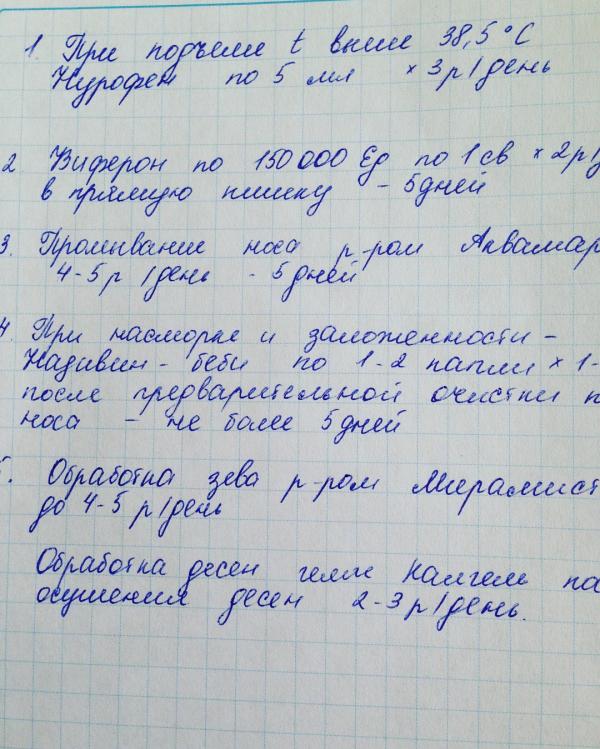 1. При подъеме t выше 38,5°C
Нурофен по 5 мл × 3 р/день
2 Виферон по 150000 Ед по 1 св × 2р/
в прямую кишку - 5 дней
3. Промывание носа р-ром Аквамар
4-5 р/день - 5 дней
4. При насморке и заложенности -
Називин - беби по 1-2 капли × 1-
после предварительной очистки
носа - не более 5 дней
5. Обработка зева р-ром Мирамист
до 4-5 р/день
Обработка десен гелем Калгель по
осушения десен 2-3 р/день.